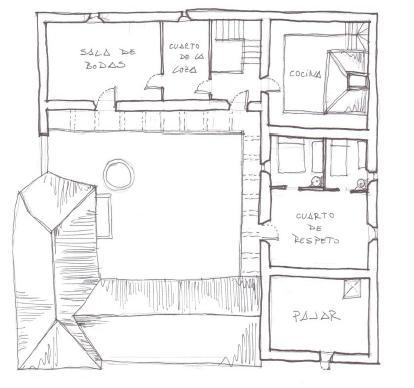 SALA DE
BODAS
CUARTO
DE LA
LOZA
COCINA
CUARTO
DE
RESPETO
PAJAR